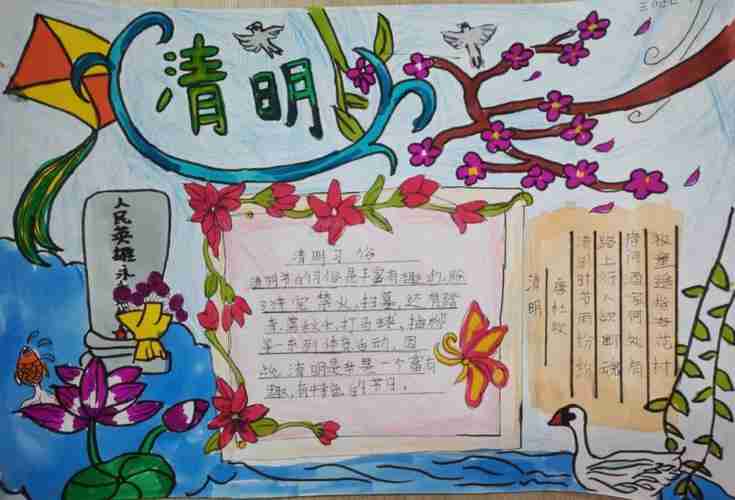 清明
人民英雄永
清明习俗
清明节的习俗是丰富有趣的,除
了讲究禁火,扫墓,还有踏
青,荡秋千,打马球,插柳
等一系列体育活动,因
此,清明是一个富有
趣,有特色的节日。
清明
唐杜牧
清明时节雨纷纷
路上行人欲断魂
借问酒家何处有
牧童遥指杏花村